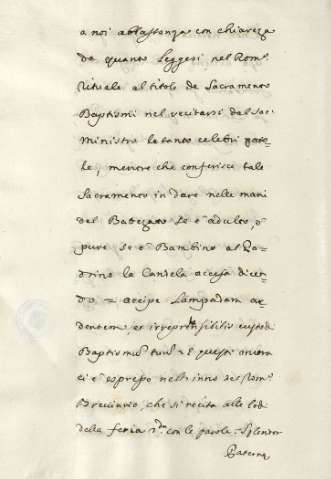 a noi abbastanza con chiareza
da quanto leggesi nel Rom.
Rituale al titolo de Sacramento
Baptismi nel recitarsi dal Sac.
Ministro le tanto celebri paro=
le, mentre che conferisce tale
Sacramento in dare nelle mani
del Batezato se è adulto, ò
pure se è Bambino al Pa=
drino la Candela accesa dicen=
do = accipe Lampadam ar=
dentem, et irreprehensibilis custodi
Baptismū tuū = E questo ancora
ci è espresso nell'inno del Rom.
Breviario, che si recita alle lodi
della feria 2da con le parole = Splendor
Paterna